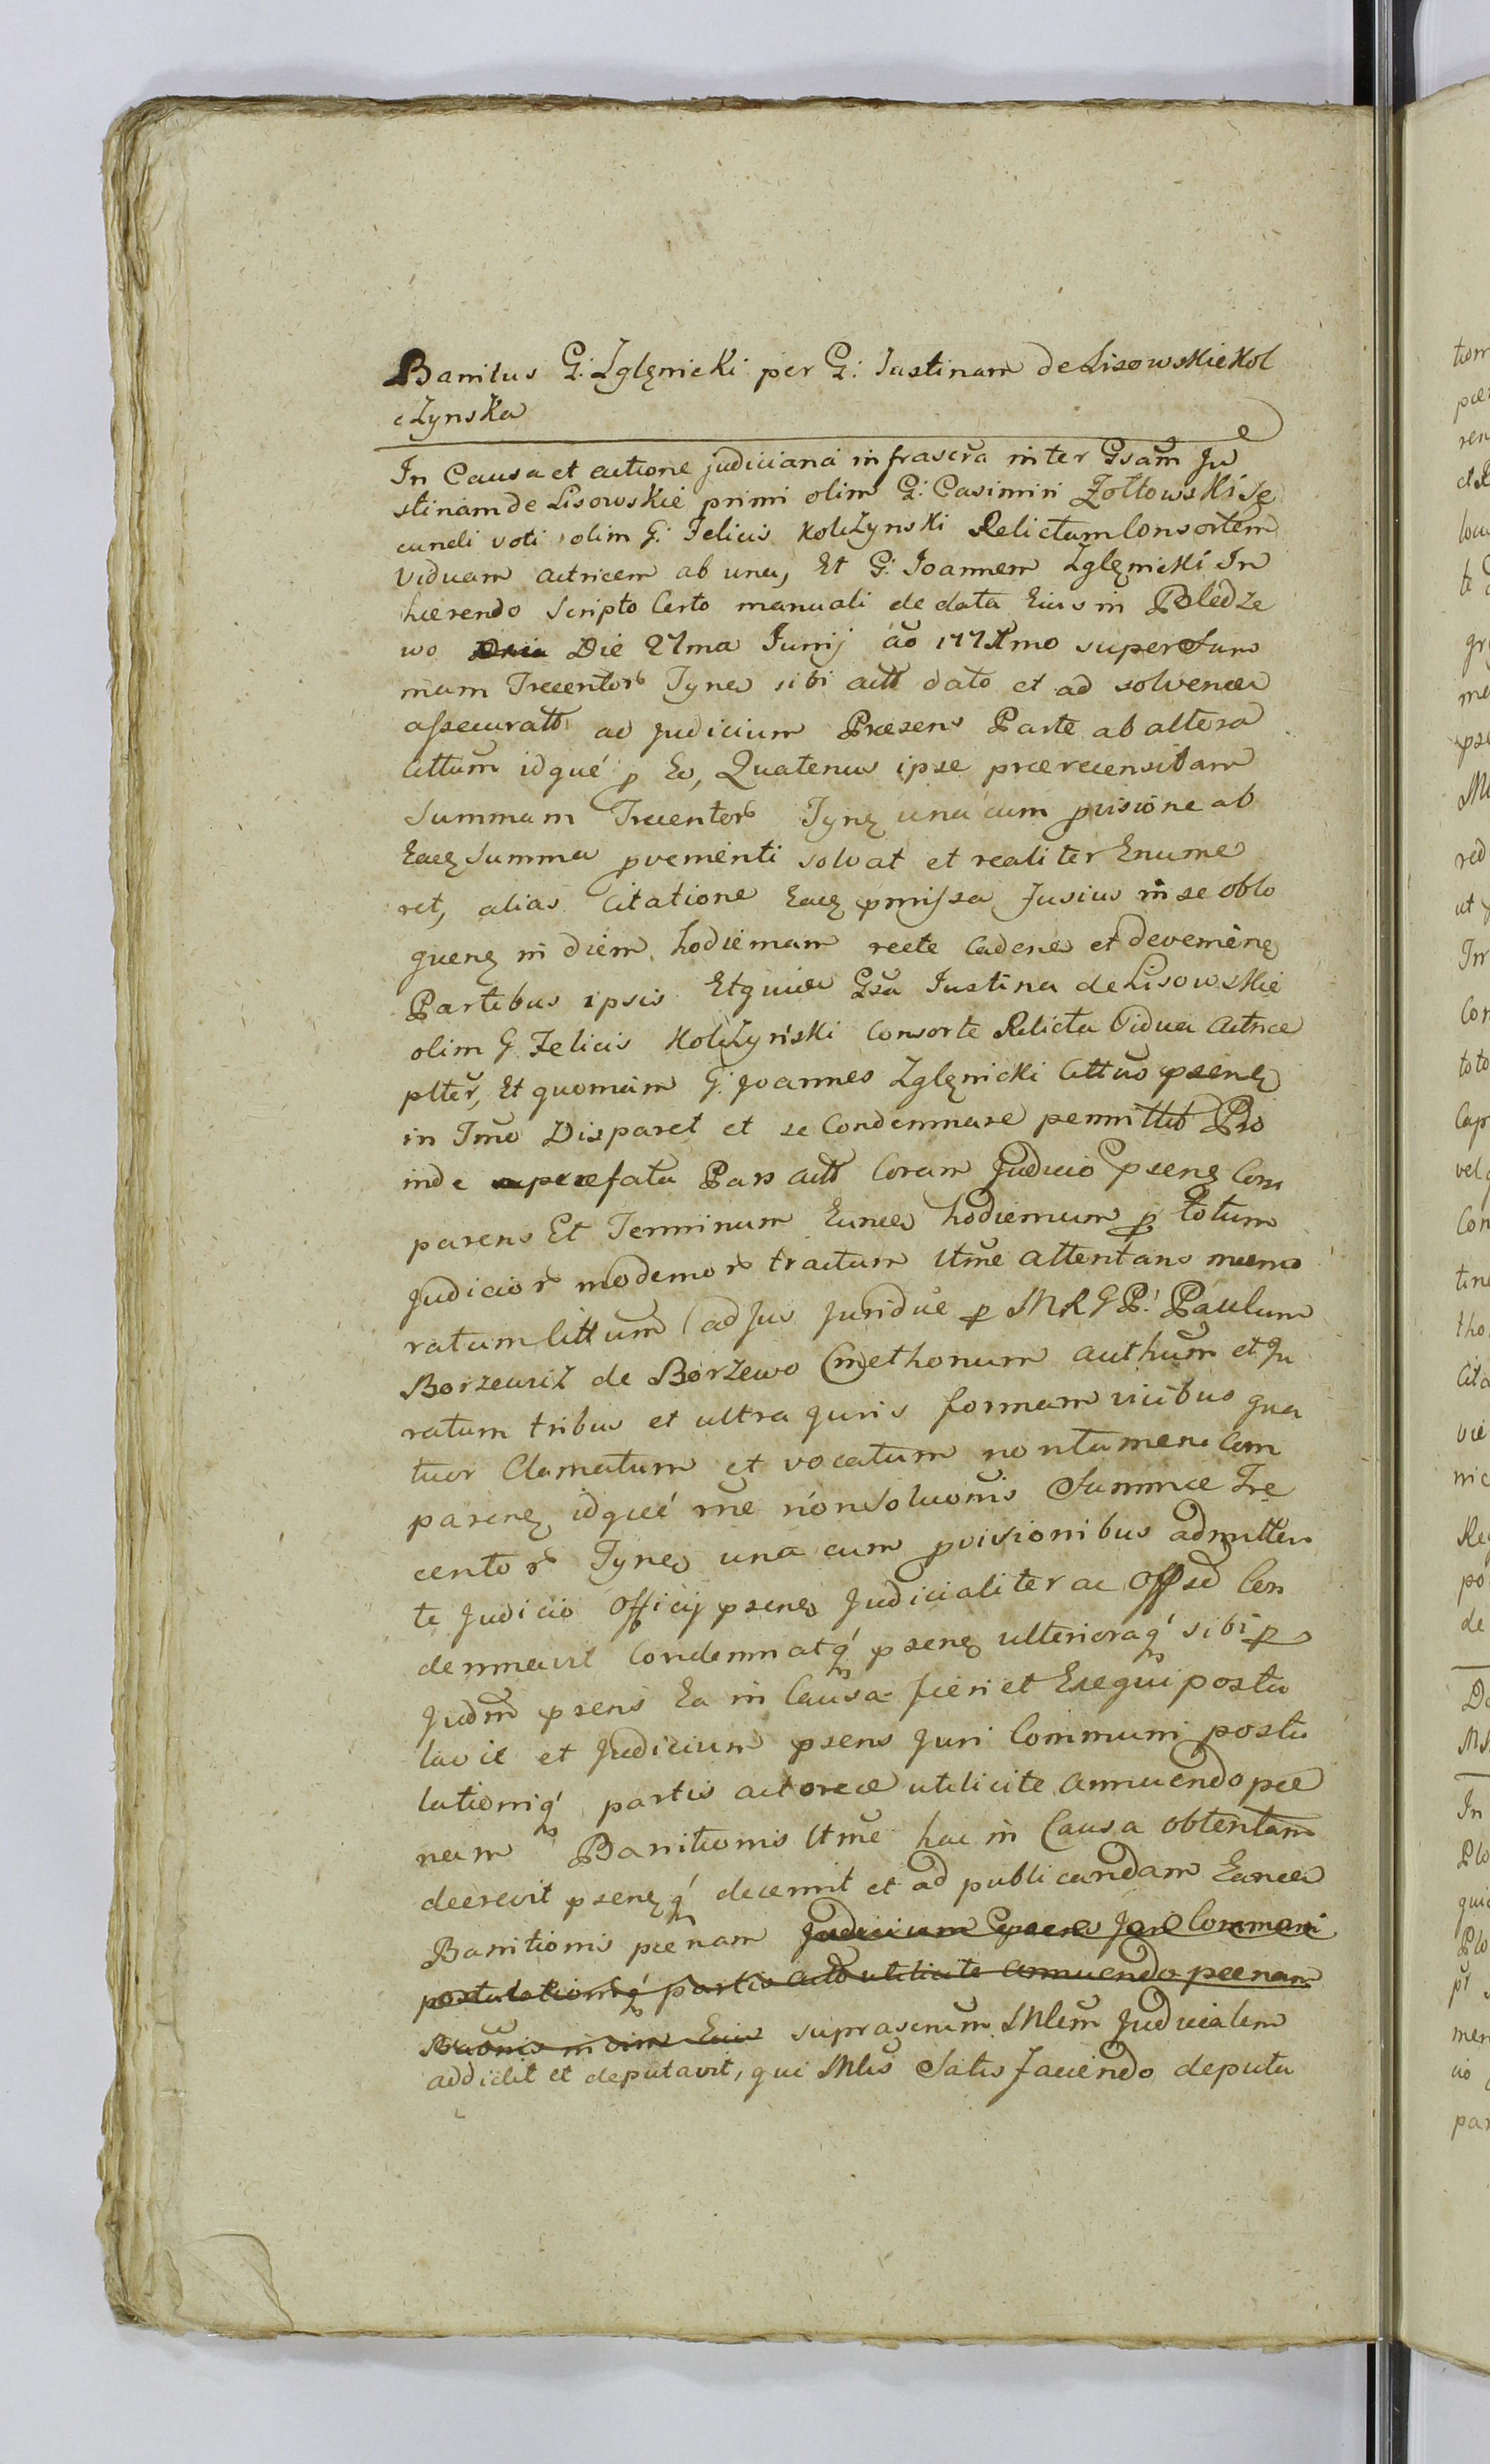 Banitus G. Zglęnicki per G. Iustinam de Lisowskie Kol
czynska
In Causa et actione judiciaria infrascra inter Gsam Ju
stinam de Lisowskie primi olim G. Casimiri Zołtowski Se
cundi voti olim G. Felicis Kolczynski Relictam Consortem
Viduam actricem ab una, Et G. Joannem Zglęnicki In
hærendo Scripto Certo manuali de data Ejus in Bledze
wo Die 27ma Junij ao super Sum
mam Trecentor Tynf sibi actt dato et ad solvend
assecuratt ad Judicium Præsens Parte ab altera
Cittum idque p Eo, Quatenus ipse prærecensitam
Summam Trecentor Tynf una cum pvisione ab
Eadem Summa pvenienti solvat et realiter Enume
ret, alias Citatione Eadem pmissa fusius in se oblo
quen in diem hodiernam recte Caden et devenien
Partibus ipsis Et quia Gsa Iustina de Lisowskie
olim G Felicis Kolczyński Consorte Relicta Vidua Actrice
plter, Et quoniam G. Joannes Zglęnicki Cittus psen
in Tmo Disparet et se Condemnare permittit Pro
inde præfata Pars actt Coram Judicio psen Com
parens Et Terminum Eund hodiernum p totum
Judicior modernor tractum ltme attentans memo
ratum Cittum ad Jus Juridice p MRGP. Paulum
Borzewicz de Borzewo Cmethonum authum et Ju
ratum tribus et ultra juris formam vicibus qua
tuor Clamatum et vocatum non tamen Com
paren idque rne non Soluonis Summæ Tre
centor Tynf una cum pvisionibus admitten
te Judicio Officij psen Judicialiter ac Offse Con
demnavit Condemnatq psen ulterioraq sibi p
Judm psens Ea in Causa fieri et Exequi postu
lavit et Judicium psens Juri Communi postu
lationiq partis actoreæ utilicite annuendo pæ
nam Banitionis ltme hac in Causa obtentam
decrevit psenq decernit et ad publicandam Eand
Banitionis pænam Judicium psens Juri Communi
postulationiq partis actt utilicite annuendo pænam
suprascrum Mlem Judicialem
addidit et deputavit, qui Mlis Satis faciendo deputa